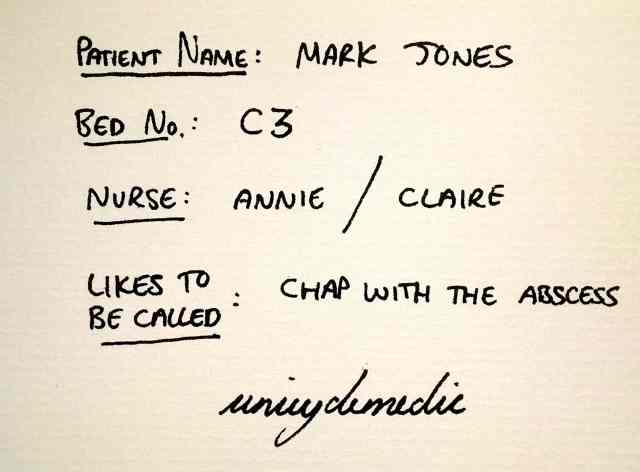 PATIENT NAME: MARK JONES
BED NO.: C3
NURSE: ANNIE / CLAIRE
LIKES TO
BE CALLED: CHAP WITH THE ABSCESS
unicyclemedic